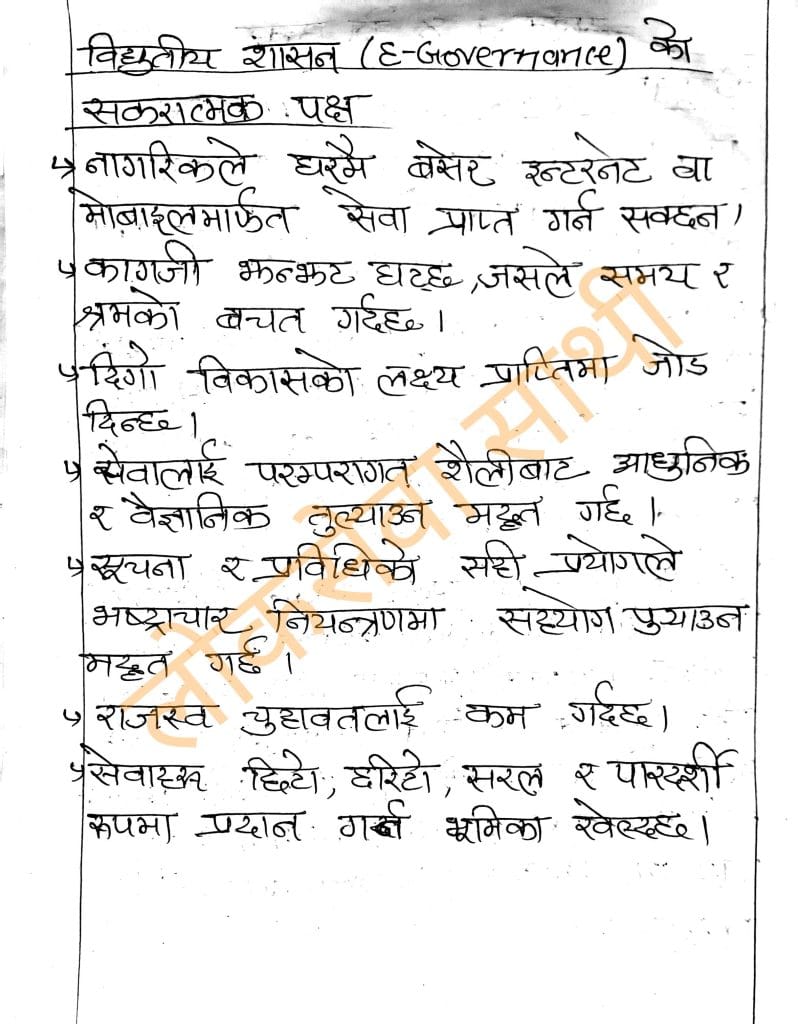 विद्युतीय शासन (E-Governance) को
सकरात्मक पक्ष
↳ नागरिकले घरमै बसेर इन्टरनेट वा
मोबाइलमार्फत सेवा प्राप्त गर्न सक्छन।
↳ कागजी झन्झट घट्छ, जसले समय र
श्रमको बचत गर्दछ।
↳ दिगो विकासको लक्ष्य प्राप्तिमा जोड
दिन्छ।
↳ सेवालाई परम्परागत शैलीबाट आधुनिक
र वैज्ञानिक तुल्याउन मद्दत गर्छ।
↳ सूचना र प्रविधिको सही प्रयोगले
भष्ट्राचार नियन्त्रणमा सहयोग पुर्‍याउन
मद्दत गर्छ।
↳ राजस्व चुहावतलाई कम गर्दछ।
↳ सेवाहरू छिटो, छरिटो, सरल र पारदर्शी
रूपमा प्रदान गर्न भूमिका खेल्दछ।
लोकसेवा साथी